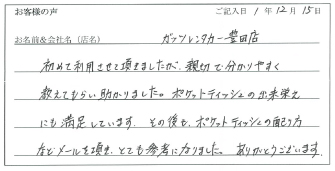 お客様の声 ご記入日 1 年 12 月 15 日
お名前&会社名(店名) ガッツレンタカー豊田店
初めて利用させて頂きましたが、親切で分かりやすく
教えてもらい助かりました。ポケットティッシュの出来栄え
にも満足しています。その後も、ポケットティッシュの配り方
などメールを頂き、とても参考になりました。ありがとうございます。